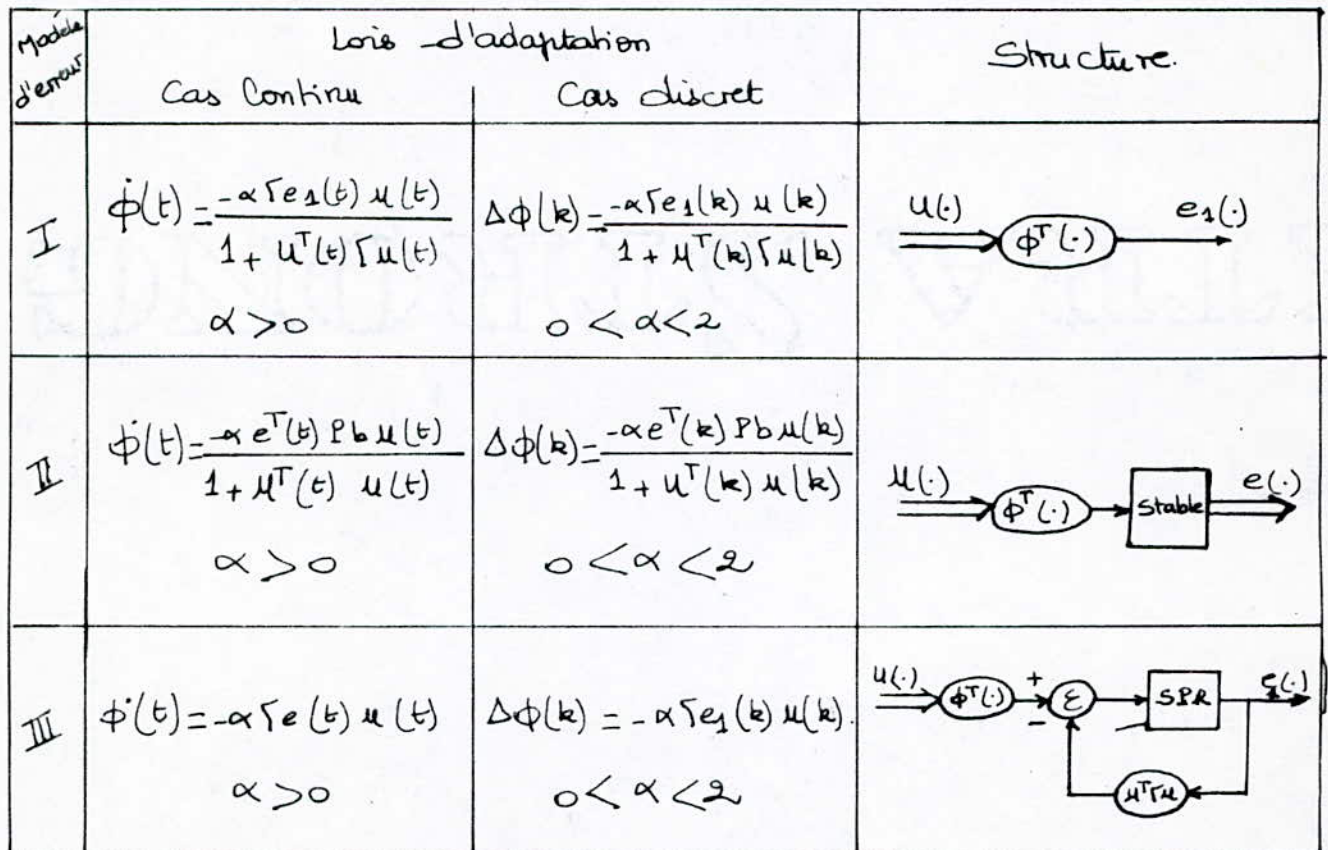 Modèle d'erreur
Lois d'adaptation
Cas Continu
Cas discret
Structure.
I
ϕ̇(t) = -αΓe1(t) u(t) / 1 + u^T(t) Γu(t)
α > 0
Δϕ(k) = -αΓe1(k) u(k) / 1 + u^T(k) Γu(k)
0 < α < 2
u(·)
ϕ^T(·)
e1(·)
II
ϕ̇(t) = -α e^T(t) Pb u(t) / 1 + u^T(t) u(t)
α > 0
Δϕ(k) = -αe^T(k) Pb u(k) / 1 + u^T(k) u(k)
0 < α < 2
u(·)
ϕ^T(·)
Stable
e(·)
III
ϕ̇(t) = -αΓe(t) u(t)
α > 0
Δϕ(k) = -αΓe1(k) u(k).
0 < α < 2
u(·)
ϕ^T(·)
+
-
Σ
S.P.R
e1(·)
u^TΓu